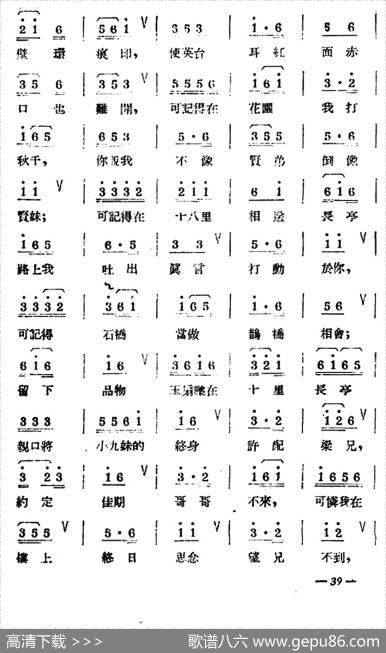 2 i 6 | 5 6 i V | 3 5 3 | 1·6 | 5 6
璧 環 痕 印， 使英台 耳紅 面赤
3 5 6 | 3 5 V | 5 5 5 6 | i 6 i | 3·2
口 也 難 開， 可記得在 花園 我 打
i 6 5 | 6 5 3 | 5·6 | 3 5 5 | 5·6
秋千， 你說我 不 像 賢 弟 倒像
i i V | 3 3 3 2 | 2 i i | 6 i | 6 i 6
賢妹； 可記得在 十八里 相 送 長 亭
i 6 5 | 6·5 | 3 3 V | 5·6 | i i V
路上我 吐 出 眞 言 打 動 於你，
3 3 3 2 | 3 6 i | i 6 5 | i·6 | 5 6 V
可記得 石橋 當做 鵲 橋 相會；
6 i 6 | i 6 V | 3 6 i 6 | 3 2 i | 6 i 6 5
留 下 品物 玉扇墜在 十 里 長 亭
3 3 3 | 5 5 6 i | i 6 V | 3·2 | i 2 6 V
親口將 小九妹的 終身 許 配 梁 兄，
3 2 3 | i 6 V | 3·2 | i 6 i | i 6 5 6
約 定 佳期 哥 哥 不來， 可憐我在
3 5 5 V | 5·6 | i i V | 3·2 | i 2 V
樓 上 終 日 思念 望 兄 不到，
— 39 —
高清下载 >>>
歌谱八六 www.gepu86.com